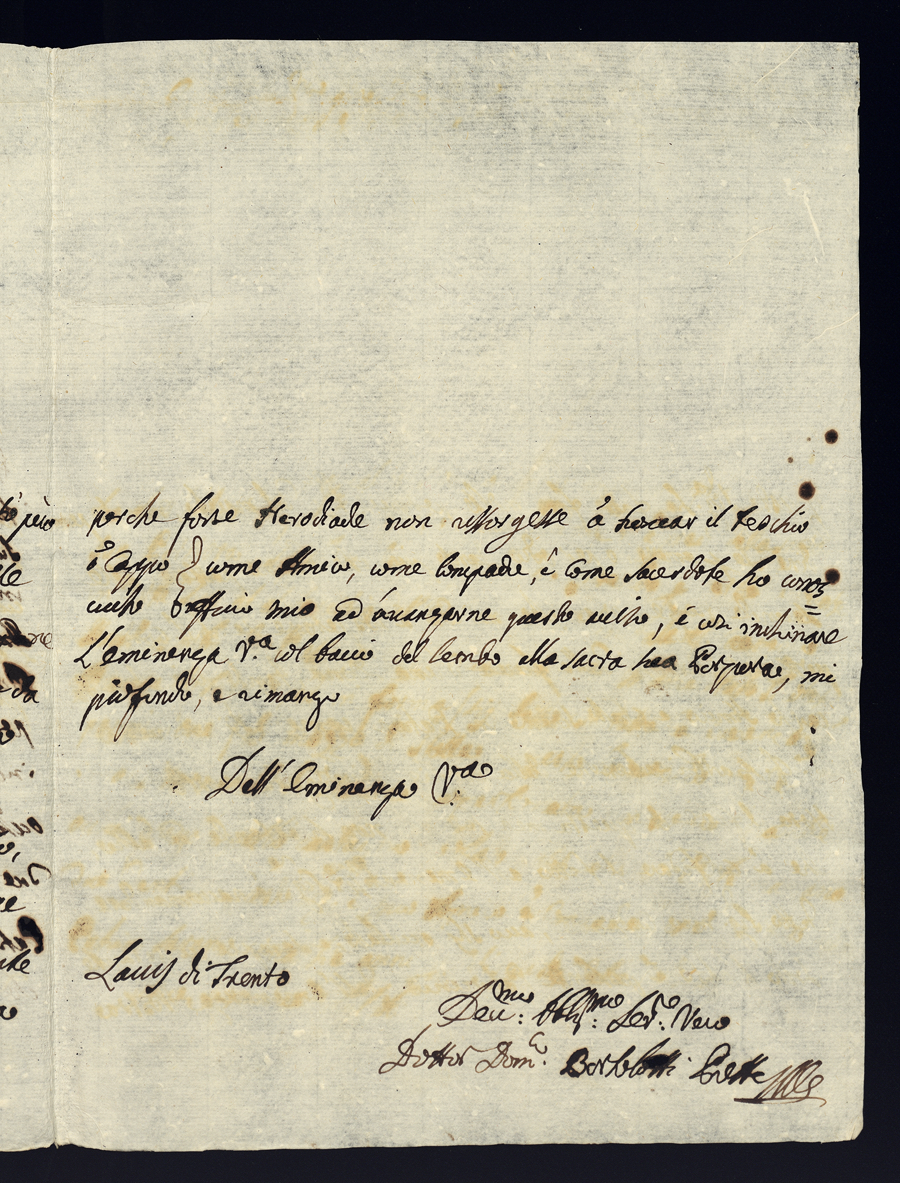 perche forse Herodiade non ressorgesse à troncar il teschio
ò Appio } come Amico, come compadre, é come sacerdote ho conos=
ciuto officio mio ad avanzarne questo aviso, é cosi inchinare
L'eminenza V.ra col bacio del lembo alla sacra sua Porpora, mi
profondo, e rimango
Dell'Eminenza V.ra
Lavis di Trento
Dev.mo: Obbl.mo: Ser.e: Vero
Dottor Dom.co: Bortolotti Prette